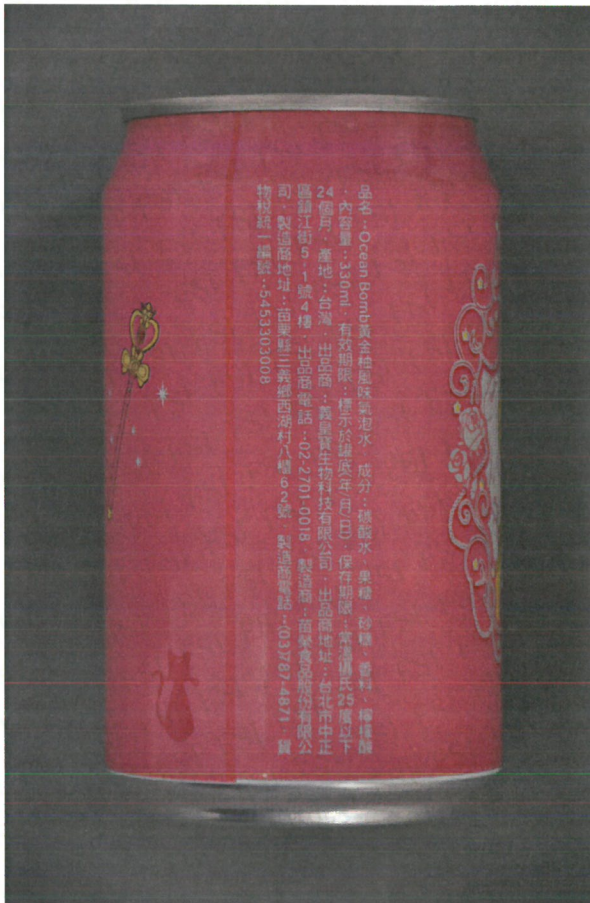 品名：Ocean Bomb黃金柚風味氣泡水　成分：碳酸水、果糖、砂糖、香料、檸檬酸
．內容量：330ml．有效期限：標示於罐底(年月日)　保存期限：常溫攝氏25度以下
24個月．產地：台灣　出品商：義量寶生物科技有限公司．出品商地址：台北市中正
區鎮江街5-1號4樓．出品商電話：02-2701-0018．製造商：苗榮食品股份有限公
司．製造商地址：苗栗縣三義鄉西湖村八櫃62號　製造商電話：(037)87-4871．貨
物稅統一編號：5453303008